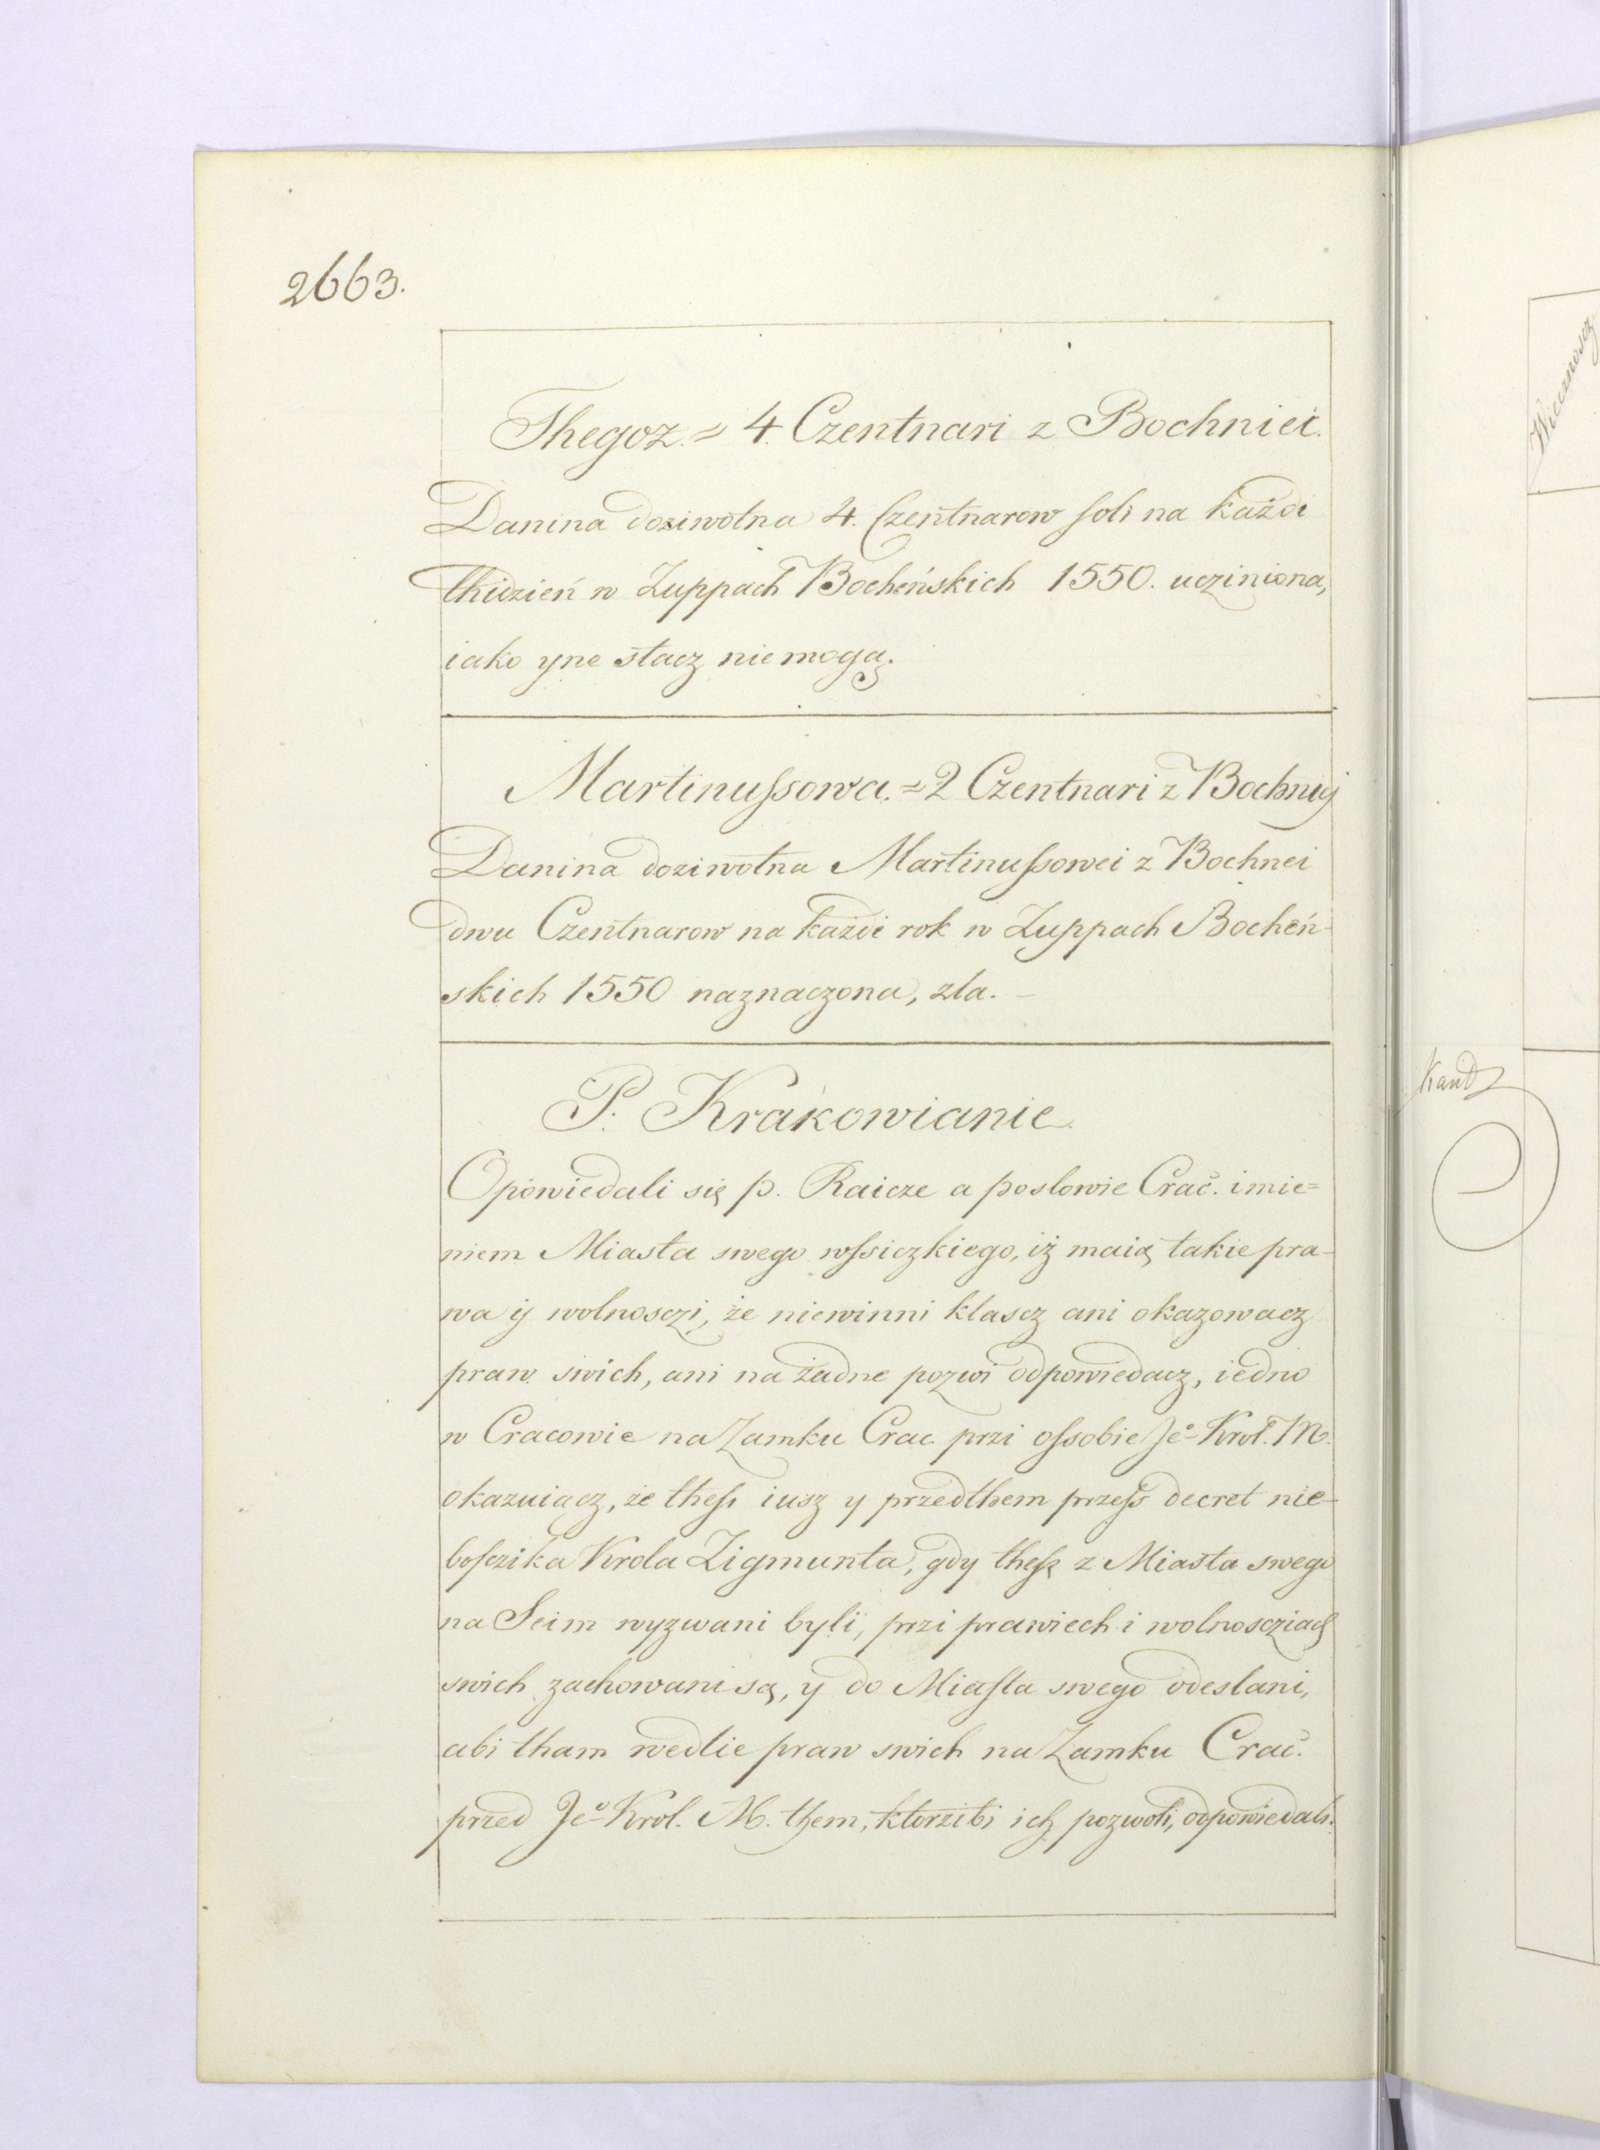 2663.
Thegoz. = 4. Czentnari z Bochniei.
Danina doziwotna 4. Czentnarow soli na każdi
thidzień w Zuppach Bocheńskich 1550. uczyniona,
iako yne stacz niemogą.
Martinussowa. = 2 Czentnari z Bochnij
Danina doziwotna Martinussowei z Bochnei
dwu Czentnarow na każdi rok w Zuppach Bocheń-
skich 1550 naznaczona, zla.
P. Krakowianie
Opowiedali się p. Raicze a poslowie Crac. imie=
niem Miasta swego wssiczkiego, iż maią takie pra-
wa ij wolnosczi, że niewinni klascz ani okazowacz
praw swich, ani na żadne pozwi odpowiedacz, iedno
w Cracowie na Zamku Crac. przi ossobie Jeº Krol. M.
okazuiącz, że thesz iusz y przedthem przess decret nie-
bosczika Krola Zigmunta, gdy thesz z Miasta swego
na Seim wyzwani byli, przi prawiech i wolnoscziach
swich zachowani są, y do Miasta swego odeslani,
abi tham wedlie praw swich na Zamku Crac.
przed Jeº Krol. M. them, ktorzibi ich pozwoli, odpowiedali.
Wiecznoscz
Kand